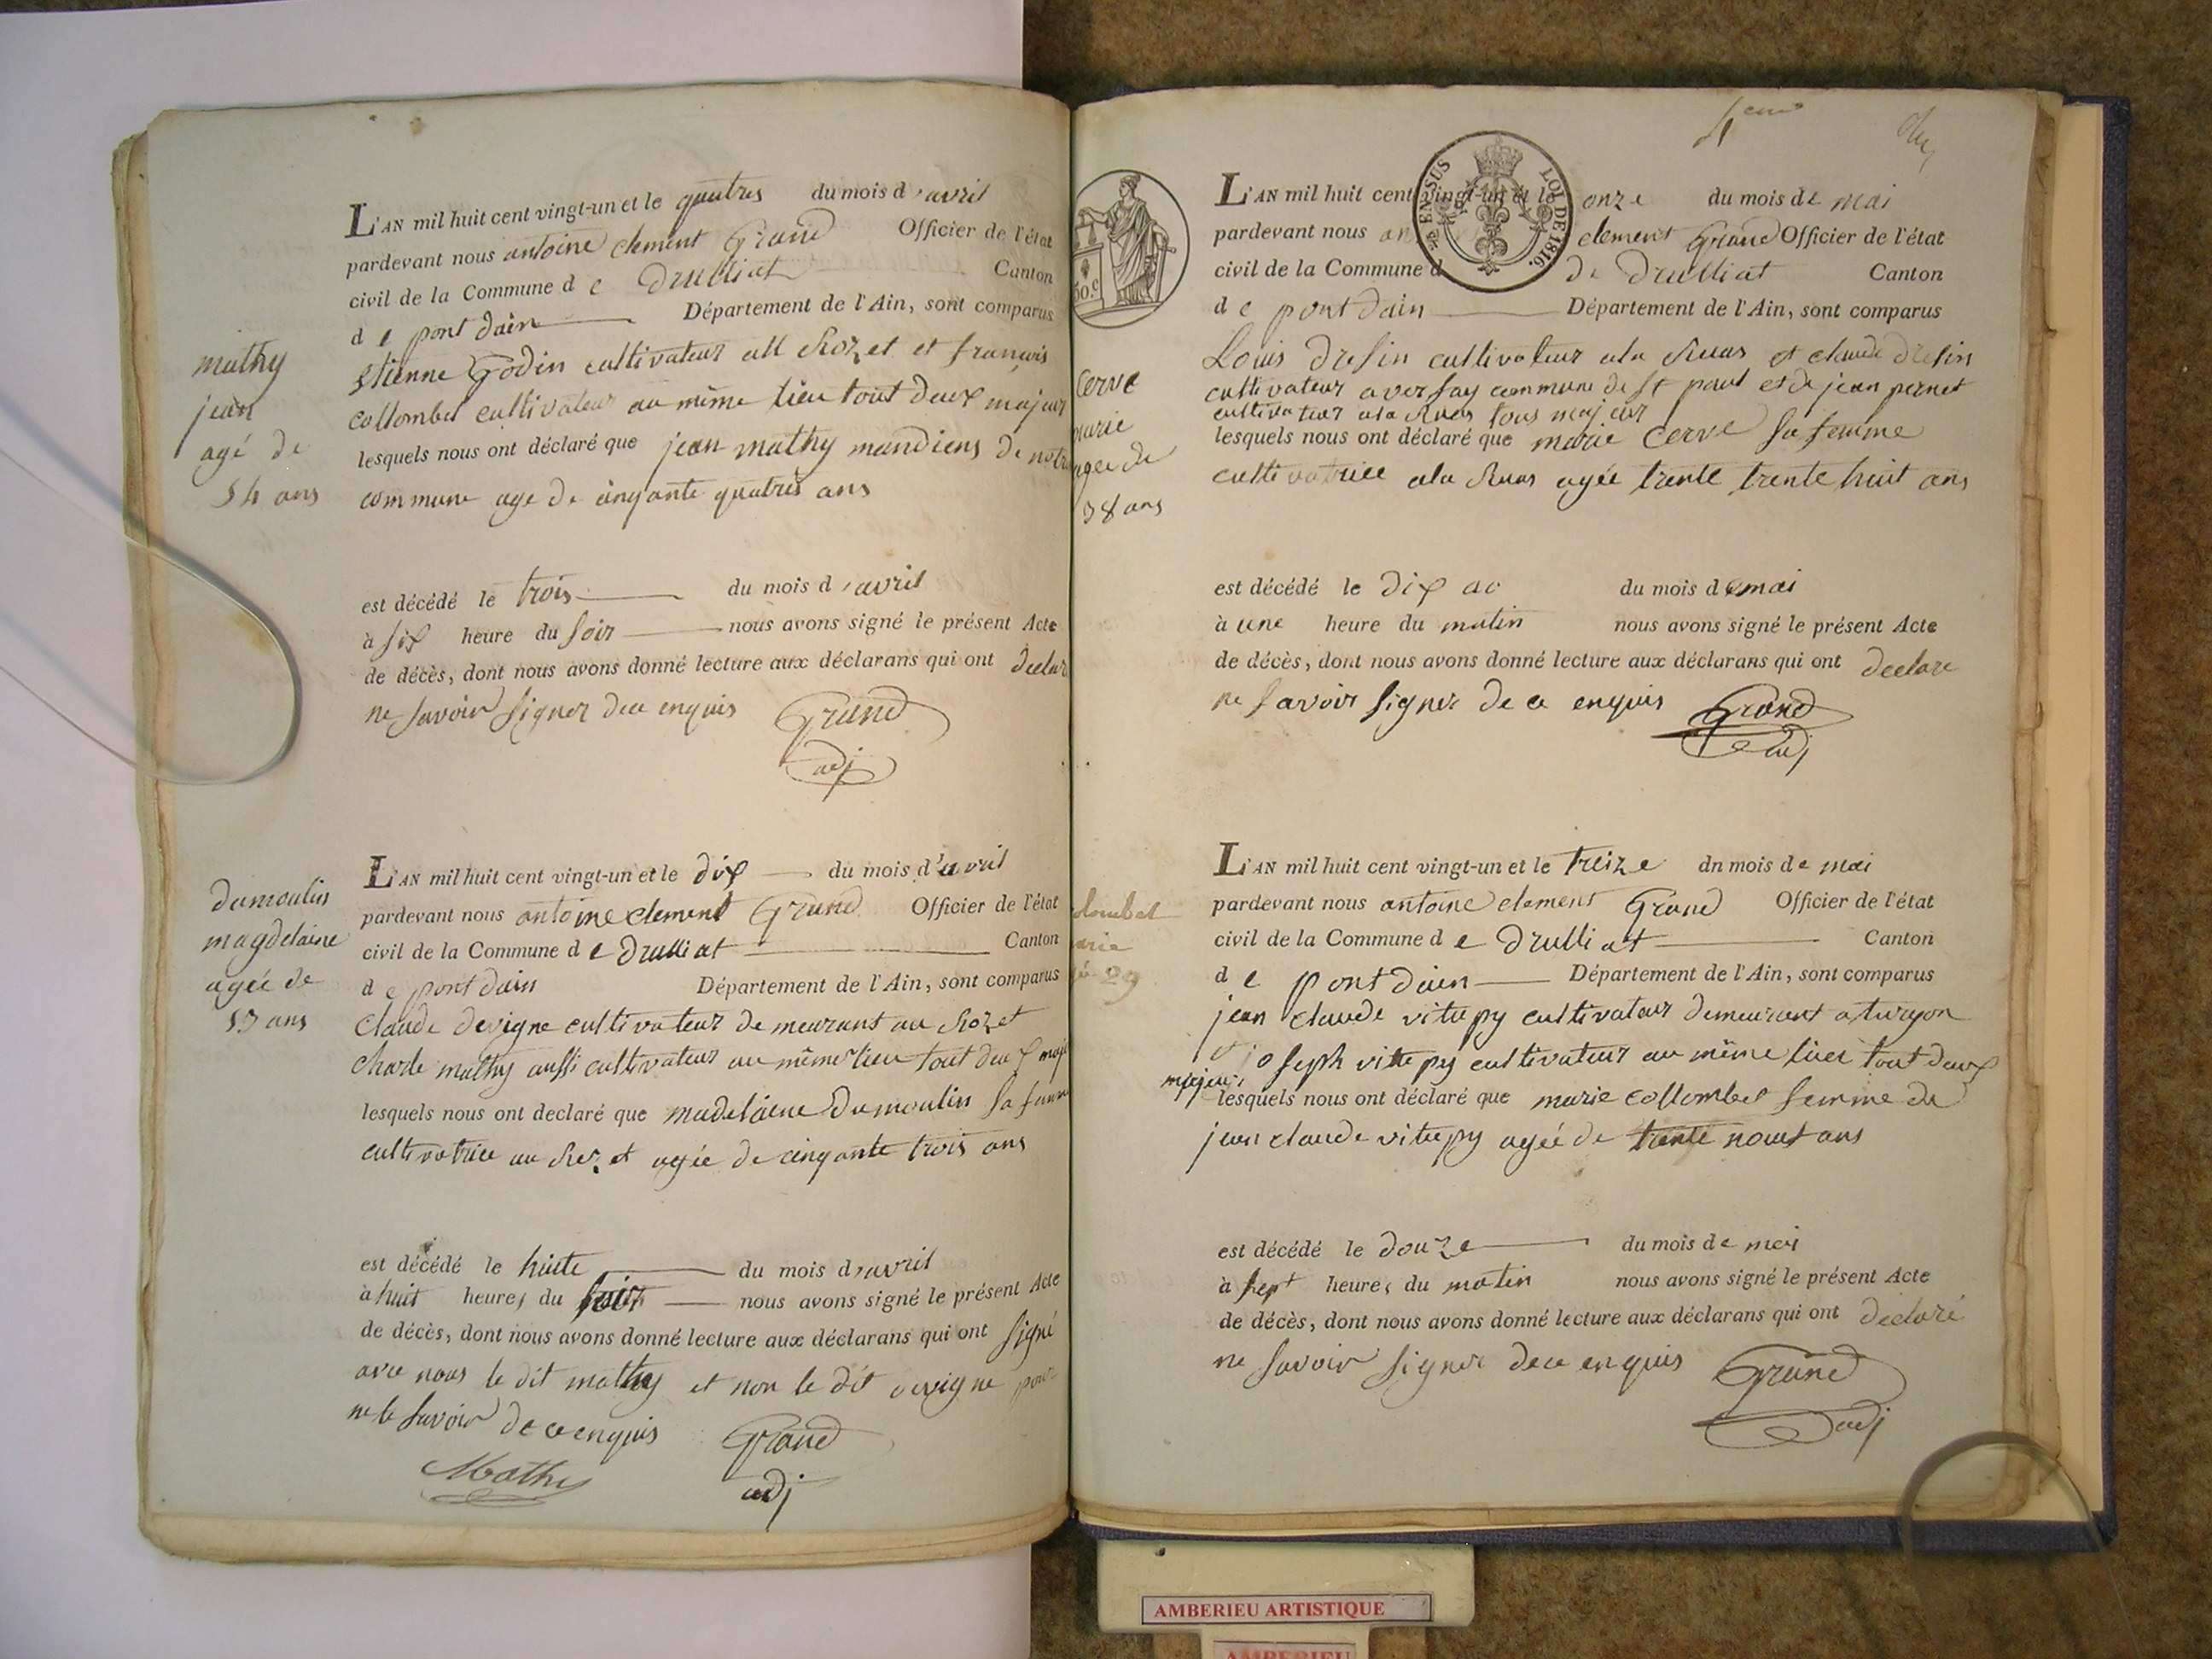 L'AN mil huit cent vingt-un et le quatres du mois d'avril
pardevant nous antoine clement Grand Officier de l'état
civil de la Commune d e Drulliat Canton
d e pont dain Département de l'Ain, sont comparus
etienne Godin cultivateur au Rozet et francois
collombet cultivateur au même lieu tout deux majeur
lesquels nous ont déclaré que jean mathy mandiens de notre
commune age de cinqante quatres ans
mathy
jean
agé de
54 ans
est décédé le trois du mois d'avril
à six heure du soir nous avons signé le présent Acte
de décès, dont nous avons donné lecture aux déclarans qui ont declar
ne savoir signer de ce enquis Grand
adj
L'AN mil huit cent vingt-un et le dix du mois d'avril
pardevant nous antoine clement Grand Officier de l'état
civil de la Commune d e Drulliat Canton
d e pont dain Département de l'Ain, sont comparus
claude devigne cultivateur demeurant au Rozet
charle mathy aussi cultivateur au même lieu tout deux maje
lesquels nous ont declaré que madelaine Dumoulin sa femme
cultivatrice au Rozet agée de cinqante trois ans
dumoulin
magdelaine
agée de
53 ans
est décédé le huite du mois d'avril
à huit heures du soir nous avons signé le présent Acte
de décès, dont nous avons donné lecture aux déclarans qui ont signé
avec nous le dit mathy et non le dit devigne pour
ne le savoir de ce enquis Grand
Mathy adj
4eme
EN SUS LOI DE 1816.
50.c
L'AN mil huit cent vingt-un et le onze du mois de mai
pardevant nous an clement Grand Officier de l'état
civil de la Commune d de Drulliat Canton
d e pont dain Département de l'Ain, sont comparus
Louis dresin cultivateur ala Ruas et claude dresin
cultivateur a versay commune de st paul et de jean pernet
cultivateur ala Ruas tous majeur
lesquels nous ont déclaré que marie Cerve sa femme
cultivatrice ala Ruas agée trente trente huit ans
Cerve
marie
agée de
38 ans
est décédé le dix ao du mois de mai
à une heure du matin nous avons signé le présent Acte
de décès, dont nous avons donné lecture aux déclarans qui ont declare
ne savoir signer de ce enquis Grand
adj
L'AN mil huit cent vingt-un et le treize dn mois de mai
pardevant nous antoine clement Grand Officier de l'état
civil de la Commune d e Drulliat Canton
d e pont dain Département de l'Ain, sont comparus
jean claude vitupy cultivateur demeurant a turgon
et joseph vitupy cultivateur au même lieu tout deux
majeur
lesquels nous ont déclaré que marie collombet femme du
jean claude vitupy agée de trente nouf ans
llombet
arie
29
est décédé le douze du mois de mai
à sept heures du matin nous avons signé le présent Acte
de décès, dont nous avons donné lecture aux déclarans qui ont declaré
ne savoir signer de ce enquis Grand
adj
AMBERIEU ARTISTIQUE
AMBERIEU